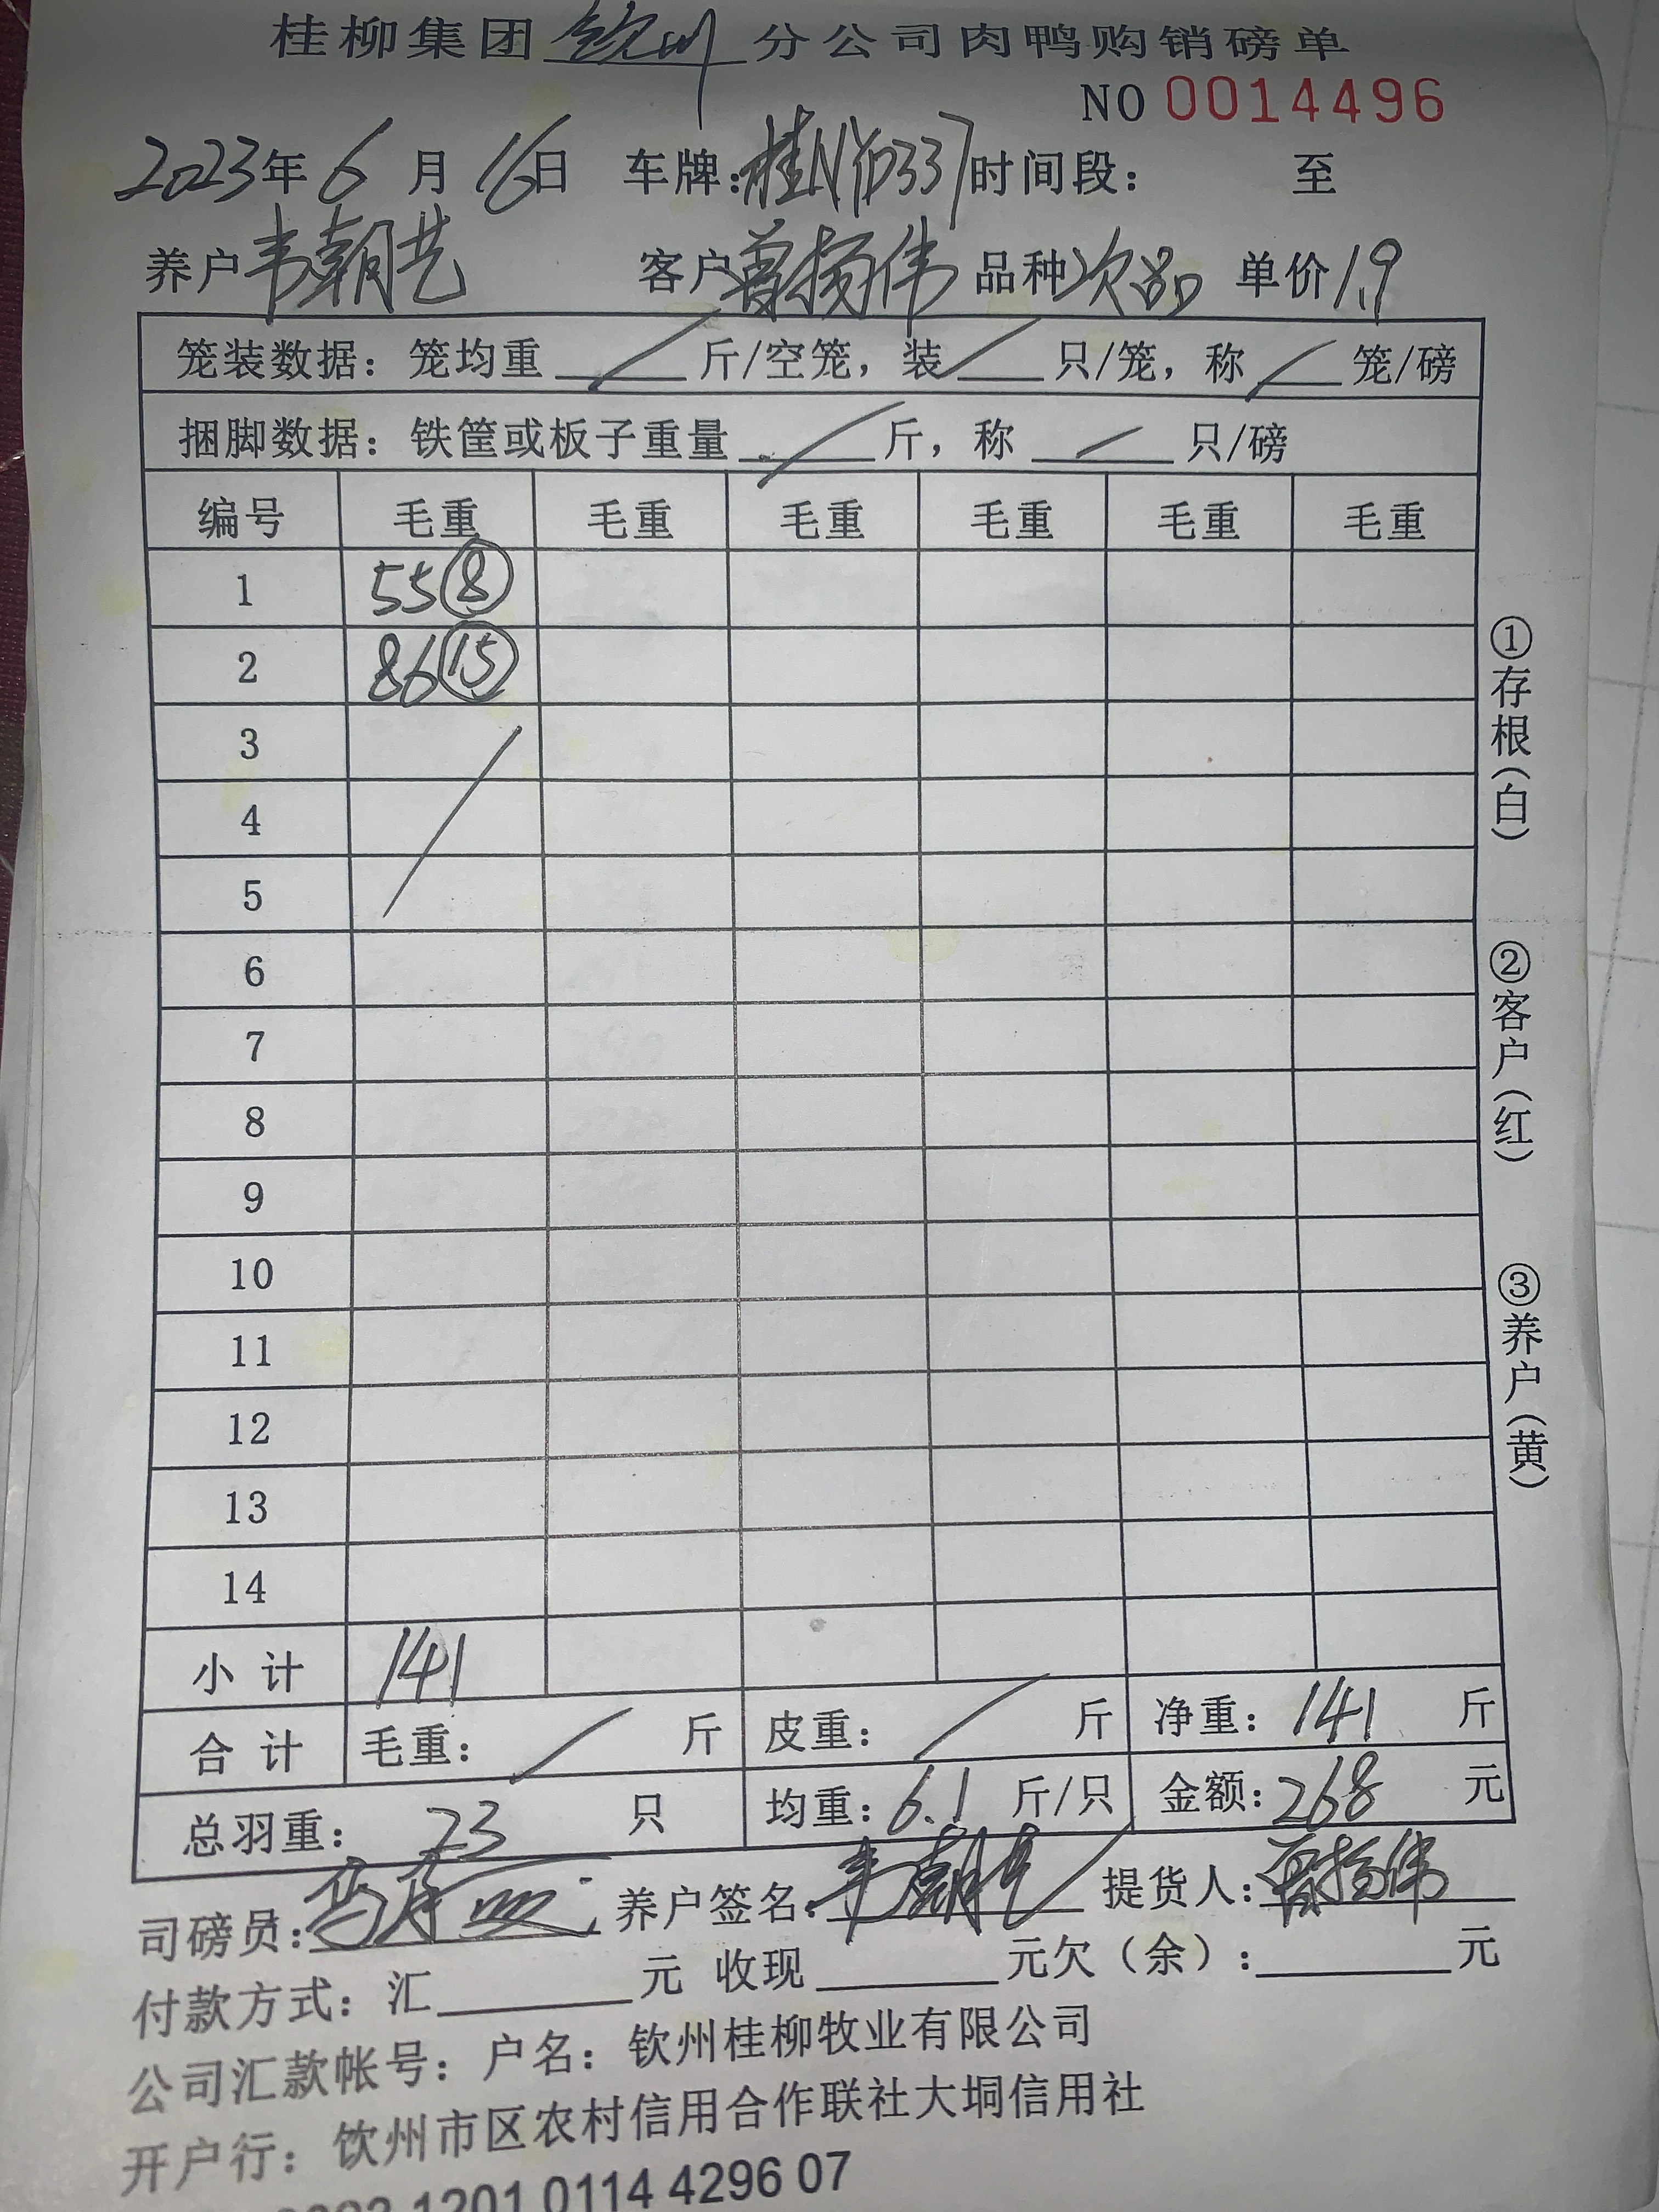 桂柳集团钦州分公司肉鸭购销磅单
NO 0014496
2023年6月16日 车牌:桂N 时间段: 至
养户韦朝艺 客户曾扬伟 品种次品 单价1.9
笼装数据: 笼均重 斤/空笼, 装 只/笼, 称 笼/磅
捆脚数据: 铁筐或板子重量 斤, 称 只/磅
编号 毛重 毛重 毛重 毛重 毛重 毛重
1 55 ⑧
2 86 ⑮
3
4
5
6
7
8
9
10
11
12
13
14
小计 141
合计 毛重: 斤 皮重: 斤 净重: 141 斤
总羽重: 23 只 均重: 6.1 斤/只 金额: 268 元
司磅员: 养户签名: 韦朝艺 提货人: 曾扬伟
付款方式: 汇 元 收现 元欠(余): 元
公司汇款帐号: 户名: 钦州桂柳牧业有限公司
开户行: 钦州市区农村信用合作联社大垌信用社
1201 0114 4296 07
①存根(白)
②客户(红)
③养户(黄)